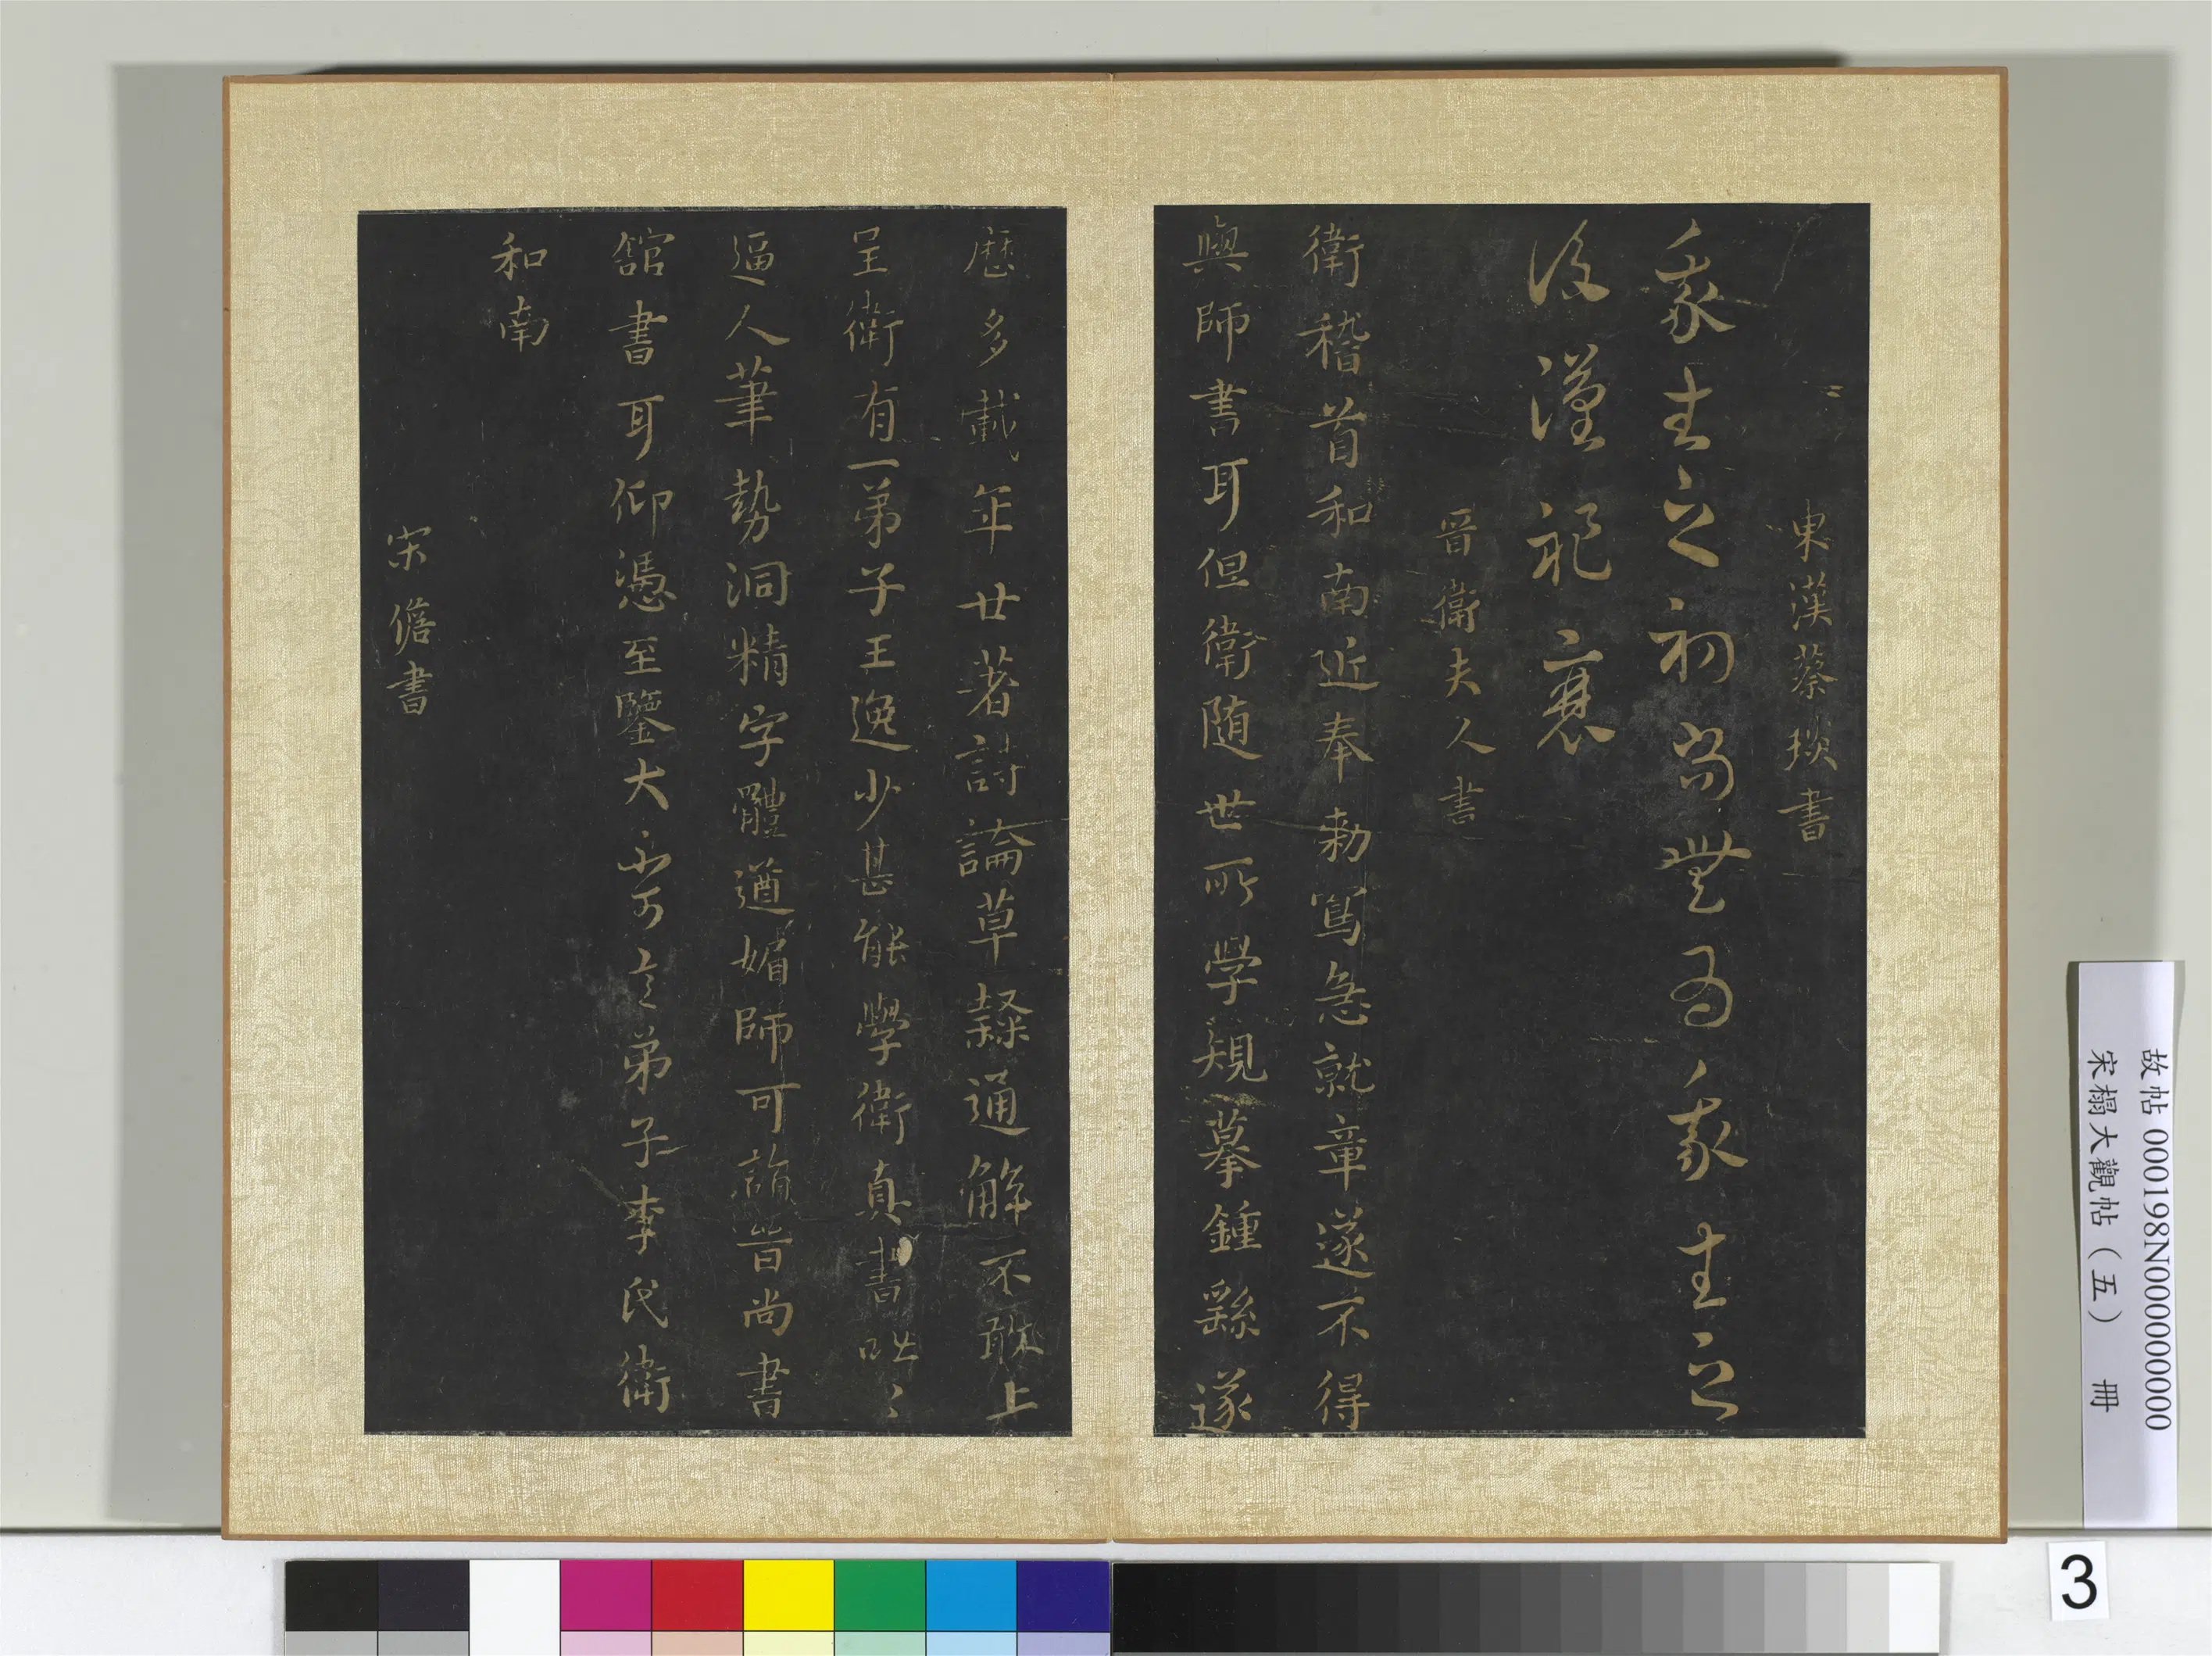 東漢蔡琰書
我生之初尚無為我生之
後漢祚衰
晉衛夫人書
衛稽首和南近奉勅寫急就章遂不得
與師書耳但衛随世所学規摹鍾繇遂
歷多載年廿著詩論草隸通解不敢上
呈衛有一弟子王逸少甚能學衛真書咄〻
逼人筆勢洞精字體遒媚師可詣晉尚書
館書耳仰憑至鑒大不可言弟子李氏衛
和南
宋儋書
故帖 000198N000000000
宋榻大觀帖（五） 冊
3